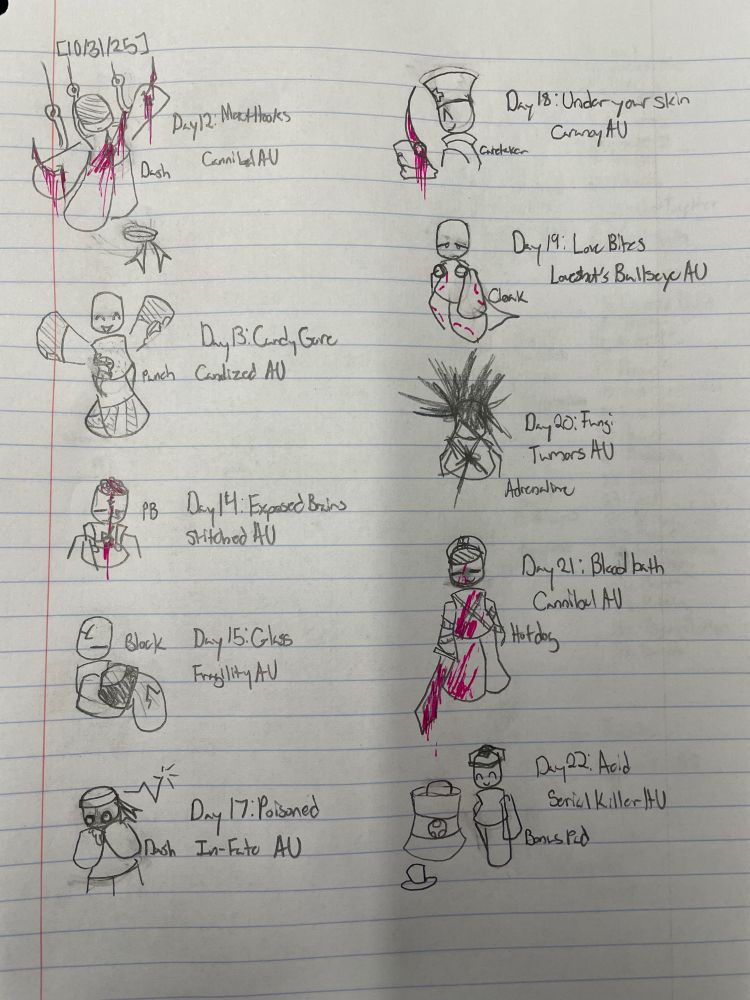 [10/31/25]
Day 12: Meat Hooks
Cannibal AU
Dash
Day 13: Candy Gore
Punch Candized AU
PB Day 14: Exposed Brains
Stitched AU
Block Day 15: Glass
Fragility AU
Day 17: Poisoned
Dash In-Fate AU
Day 18: Under your skin
AU
Caretaker
Day 19: Love Bites
Loveshot's Bullseye AU
Cloak
Day 20: Fungi
Tumors AU
Adrenaline
Day 21: Blood bath
Cannibal AU
Hotdog
Day 22: Acid
Serial Killer AU
Bonus Pad